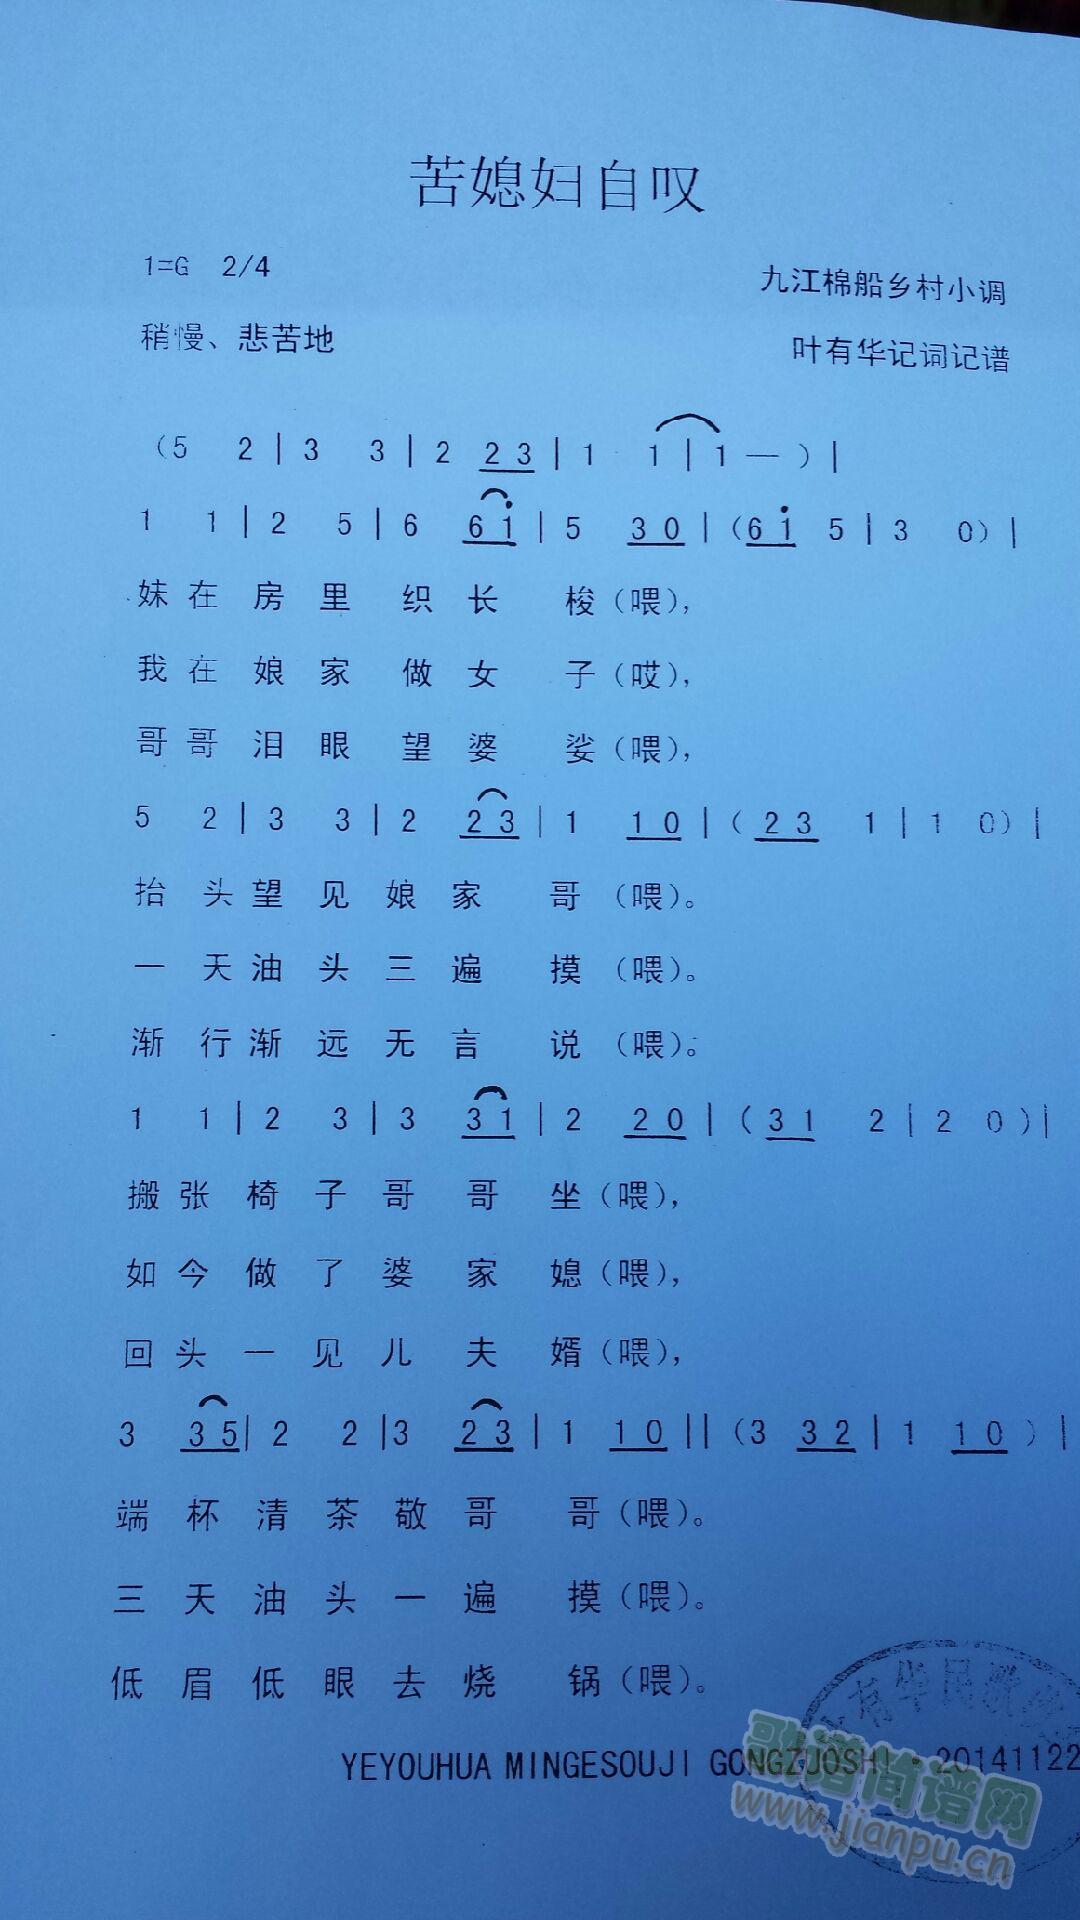 苦媳妇自叹
1=G 2/4 九江棉船乡村小调
稍慢、悲苦地 叶有华记词记谱
(5 2 | 3 3 | 2 23 | 1 1 | 1 — ) |
1 1 | 2 5 | 6 6i | 5 30 | (6i 5 | 3 0) |
妹在房里织长梭(喂),
我在娘家做女子(哎),
哥哥泪眼望婆娑(喂),
5 2 | 3 3 | 2 23 | 1 10 | (23 1 | 1 0) |
抬头望见娘家哥(喂)。
一天油头三遍摸(喂)。
渐行渐远无言说(喂)。
1 1 | 2 3 | 3 31 | 2 20 | (31 2 | 2 0) |
搬张椅子哥哥坐(喂),
如今做了婆家媳(喂),
回头一见儿夫婿(喂),
3 35 | 2 2 | 3 23 | 1 10 || (3 32 | 1 10 ) |
端杯清茶敬哥哥(喂)。
三天油头一遍摸(喂)。
低眉低眼去烧锅(喂)。
有华民歌
YEYOUHUA MINGESOUJI GONGZUOSHI·20141122
歌谱简谱网
www.jianpu.cn